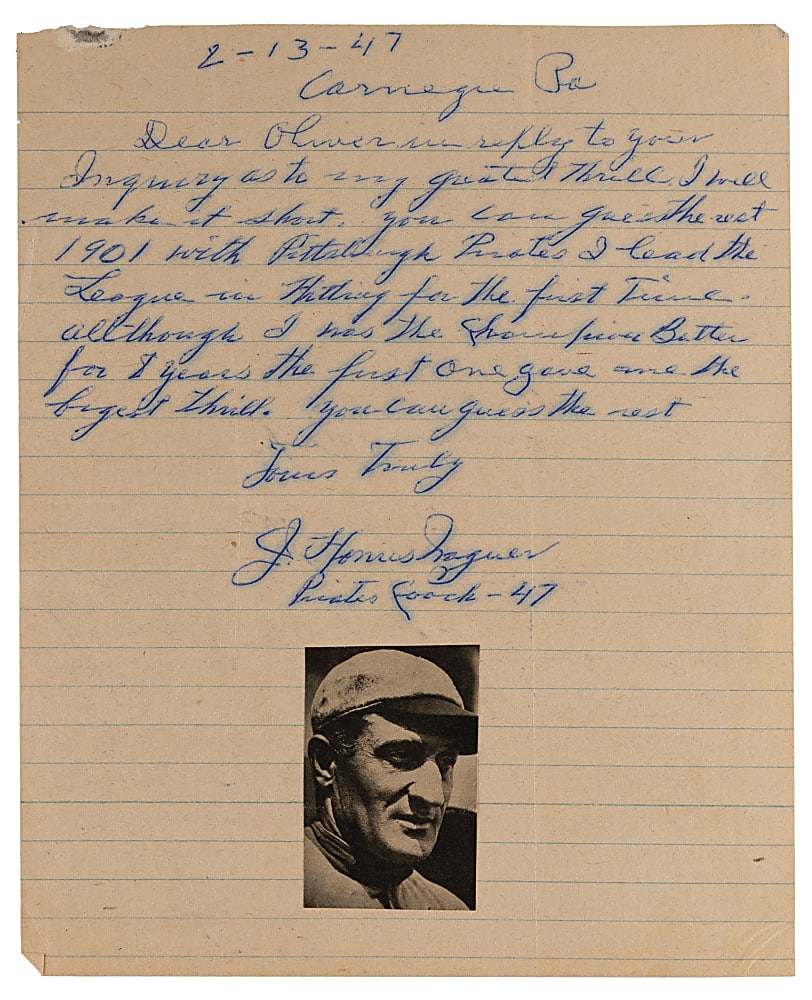 2-13-47
Carnegie Pa
Dear Oliver in reply to your
Inquiry as to my greatest Thrill, I will
make it short. you can guess the rest
1901 with Pittsburgh Pirates I lead the
League in Hitting for the first Time.
allthough I was the Champion Batter
for 8 years the first one gave me the
bigest thrill. you can guess the rest
Yours Truly
J. Honus Wagner
Pirates Coach - 47